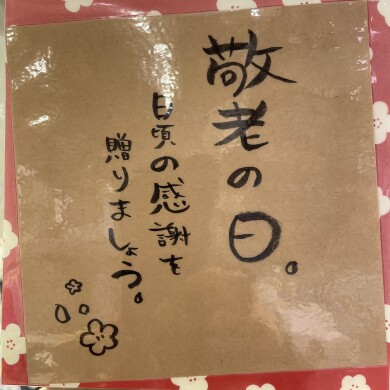 敬老の日。
日頃の感謝を
贈りましょう。